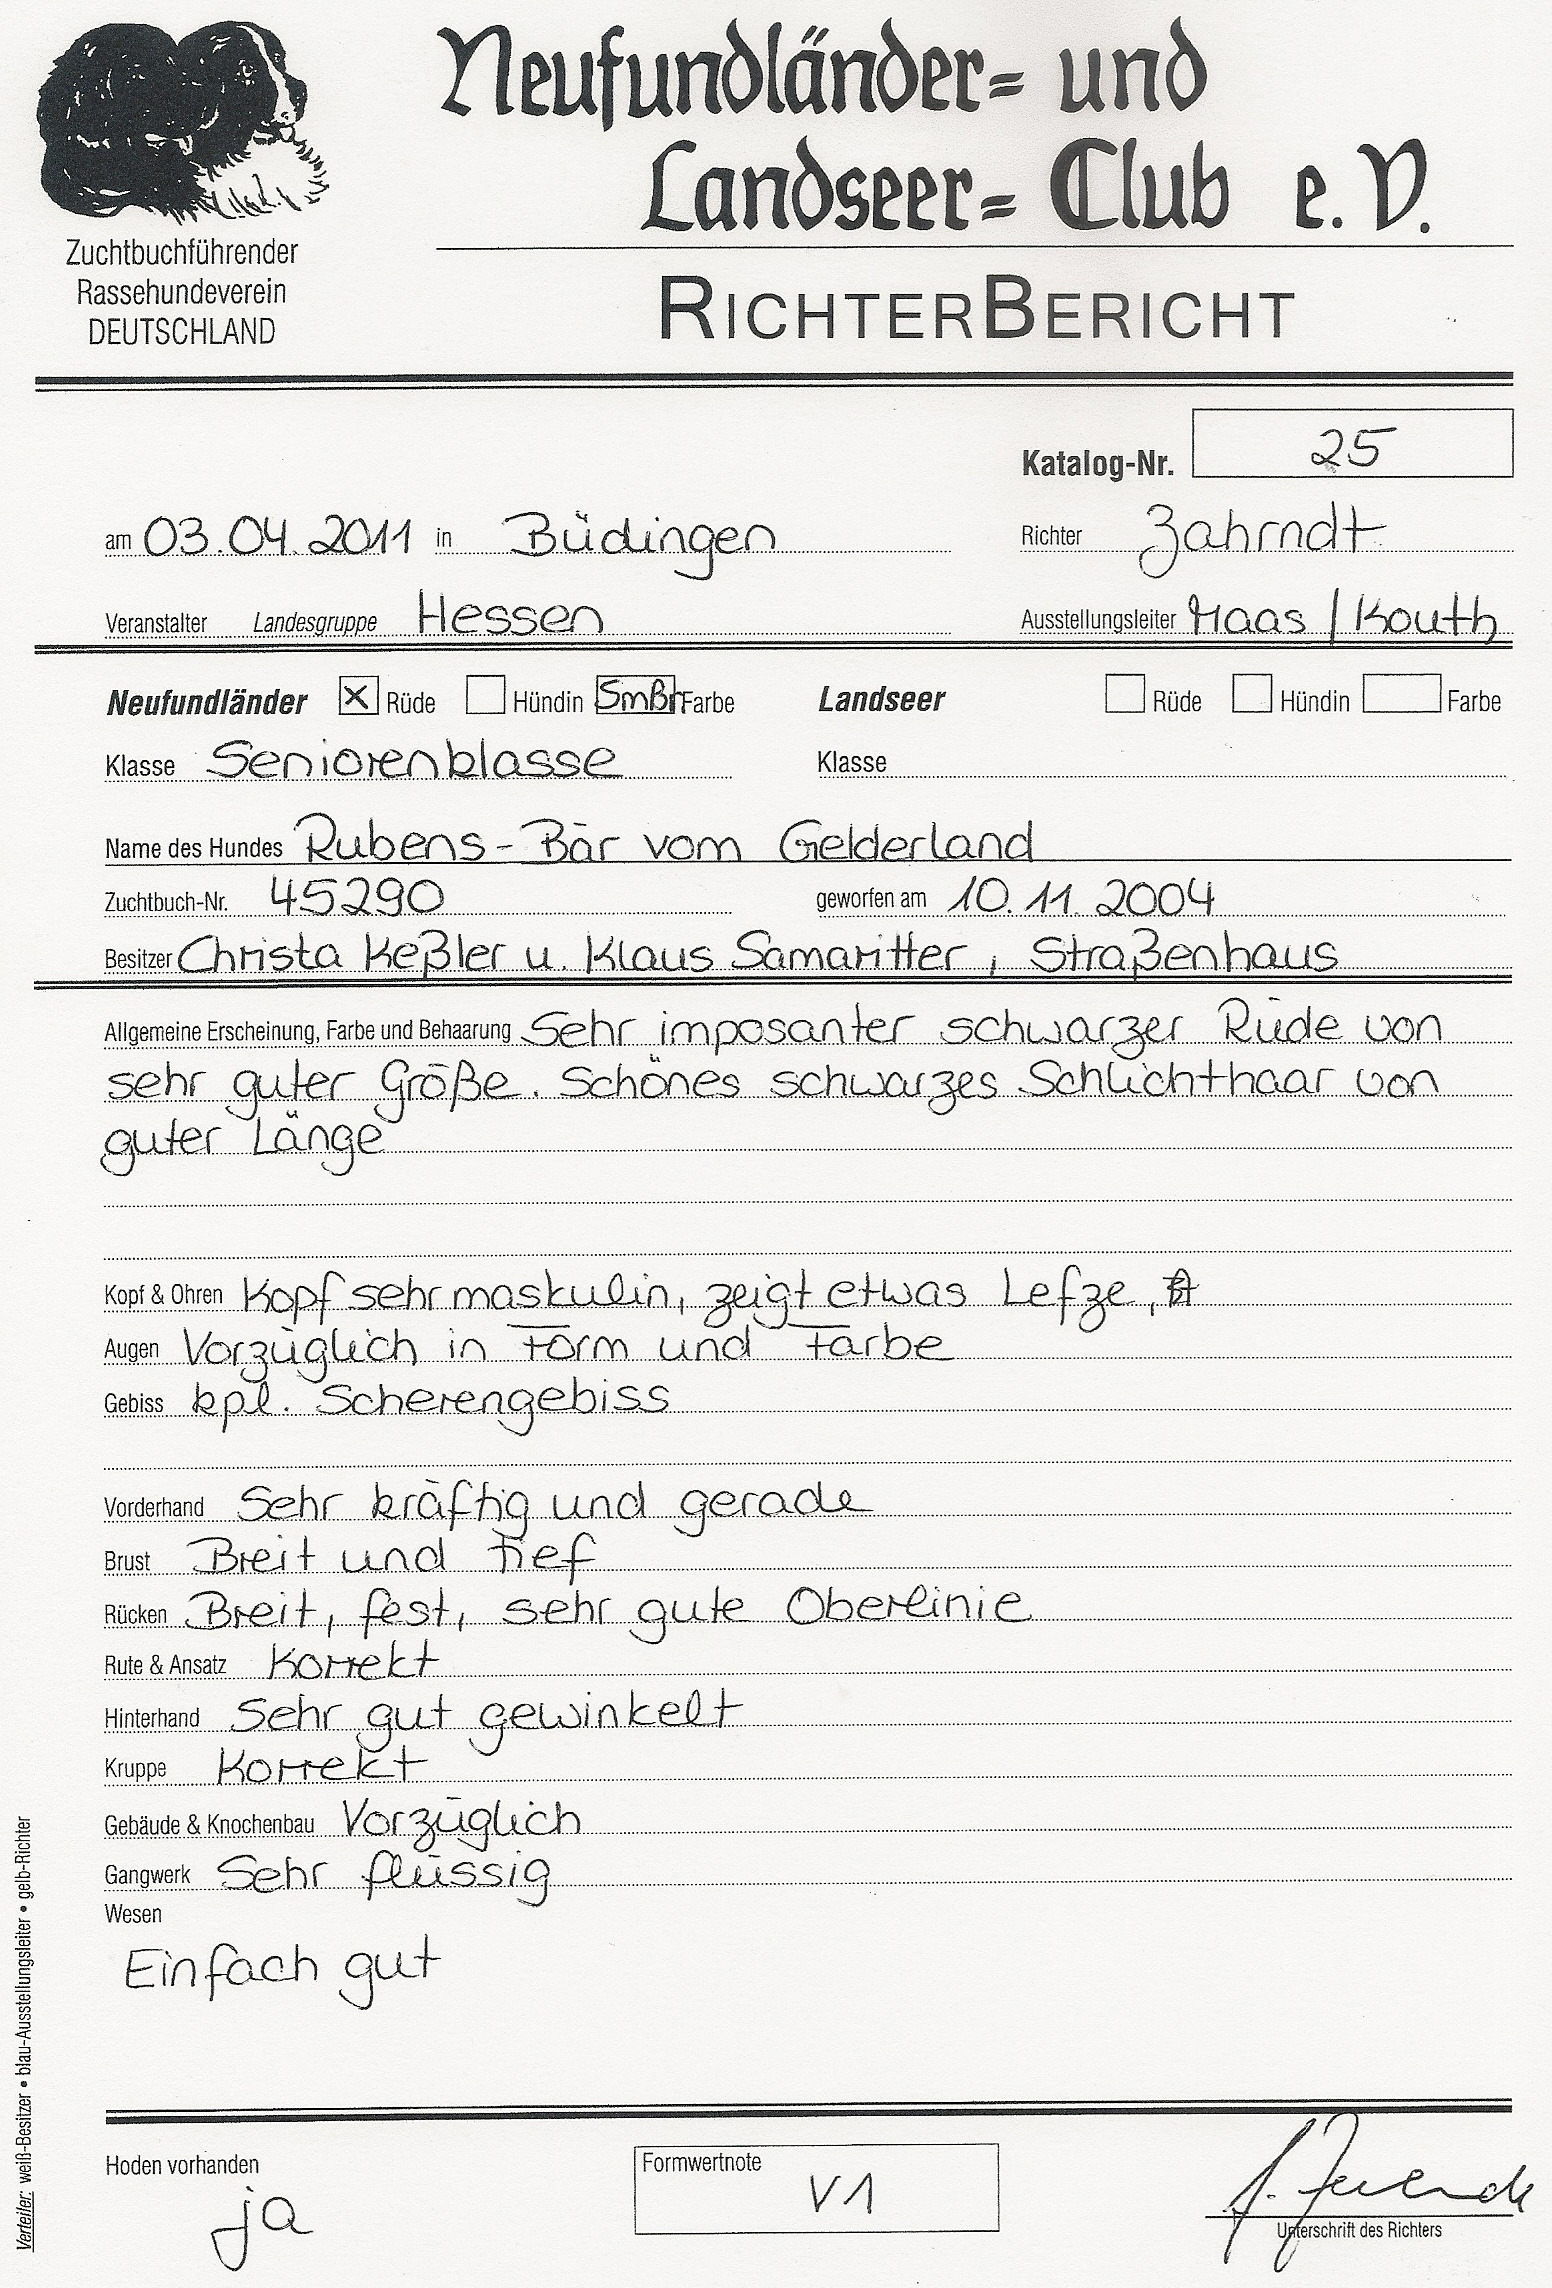 Neufundländer= und
Landseer= Club e. V.
Zuchtbuchführender
Rassehundeverein
DEUTSCHLAND
RICHTERBERICHT
Katalog-Nr. 25
am 03.04.2011 in Büdingen Richter Zahrndt
Veranstalter Landesgruppe Hessen Ausstellungsleiter Haas / Kouth
Neufundländer X Rüde Hündin SmBr Farbe Landseer Rüde Hündin Farbe
Klasse Seniorenklasse Klasse
Name des Hundes Rubens-Bär vom Gelderland
Zuchtbuch-Nr. 45290 geworfen am 10.11.2004
Besitzer Christa Keßler u. Klaus Samaritter, Straßenhaus
Allgemeine Erscheinung, Farbe und Behaarung Sehr imposanter schwarzer Rüde von
sehr guter Größe. Schönes schwarzes Schlichthaar von
guter Länge
Kopf & Ohren Kopf sehr maskulin, zeigt etwas Lefze,
Augen Vorzüglich in Form und Farbe
Gebiss kpl. Scherengebiss
Vorderhand Sehr kräftig und gerade
Brust Breit und tief
Rücken Breit, fest, sehr gute Oberlinie
Rute & Ansatz Korrekt
Hinterhand Sehr gut gewinkelt
Kruppe Korrekt
Gebäude & Knochenbau Vorzüglich
Gangwerk Sehr flüssig
Wesen
Einfach gut
Hoden vorhanden
ja
Formwertnote
V1
Unterschrift des Richters
Verteiler: weiß-Besitzer • blau-Ausstellungsleiter • gelb-Richter